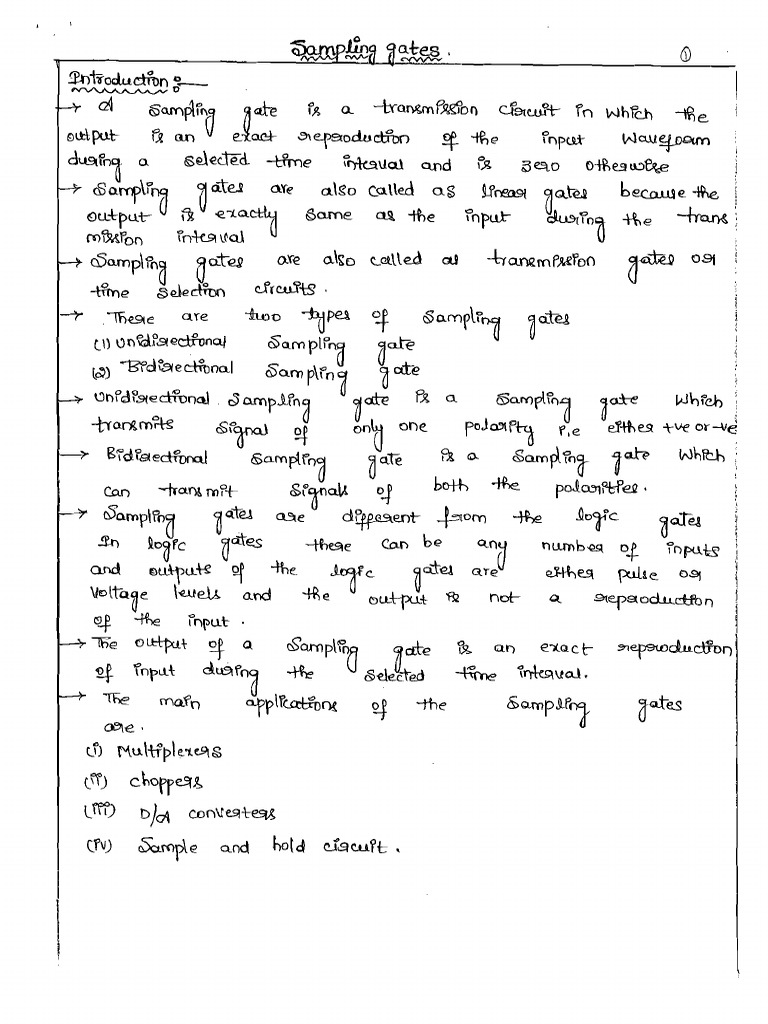 Sampling gates.
①
Introduction:-
→ A Sampling gate is a transmission circuit in which the
output is an exact reproduction of the input waveform
during a selected time interval and is zero otherwise
→ Sampling gates are also called as linear gates because the
output is exactly same as the input during the trans
mission interval
→ Sampling gates are also called as transmission gates or
time selection circuits.
→ There are two types of Sampling gates
(1) Unidirectional Sampling gate
(2) Bidirectional Sampling gate
→ Unidirectional Sampling gate is a Sampling gate which
transmits signal of only one polarity i.e either +ve or -ve
→ Bidirectional Sampling gate is a Sampling gate which
can transmit signals of both the polarities.
→ Sampling gates are different from the logic gates
In logic gates there can be any number of inputs
and outputs of the logic gates are either pulse or
voltage levels and the output is not a reproduction
of the input.
→ The output of a Sampling gate is an exact reproduction
of input during the selected time interval.
→ The main applications of the Sampling gates
are.
(i) Multiplexers
(ii) choppers
(iii) D/A converters
(iv) Sample and hold circuit.